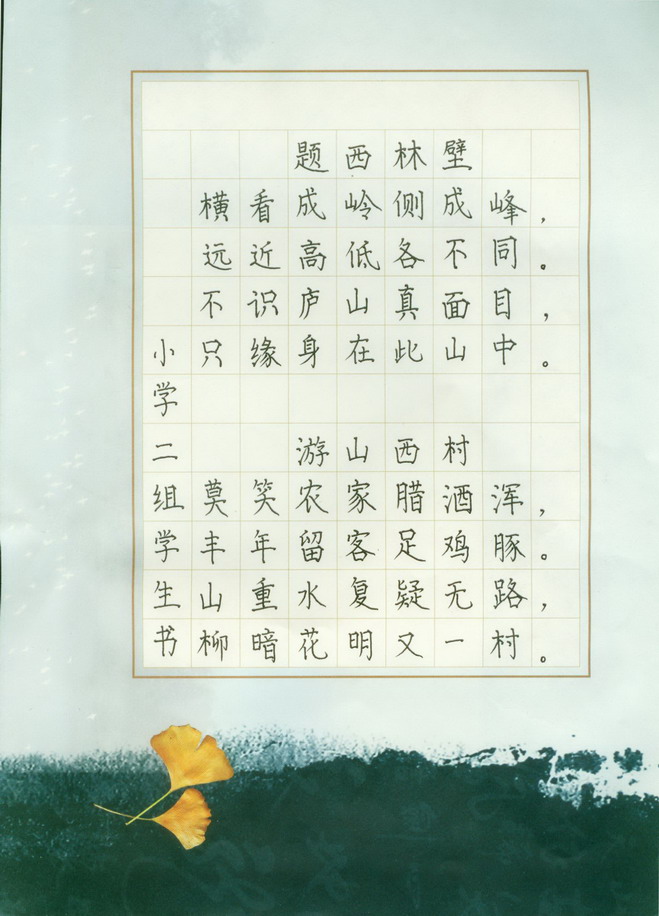 题西林壁
横看成岭侧成峰，
远近高低各不同。
不识庐山真面目，
只缘身在此山中。
游山西村
莫笑农家腊酒浑，
丰年留客足鸡豚。
山重水复疑无路，
柳暗花明又一村。
小学二组学生书